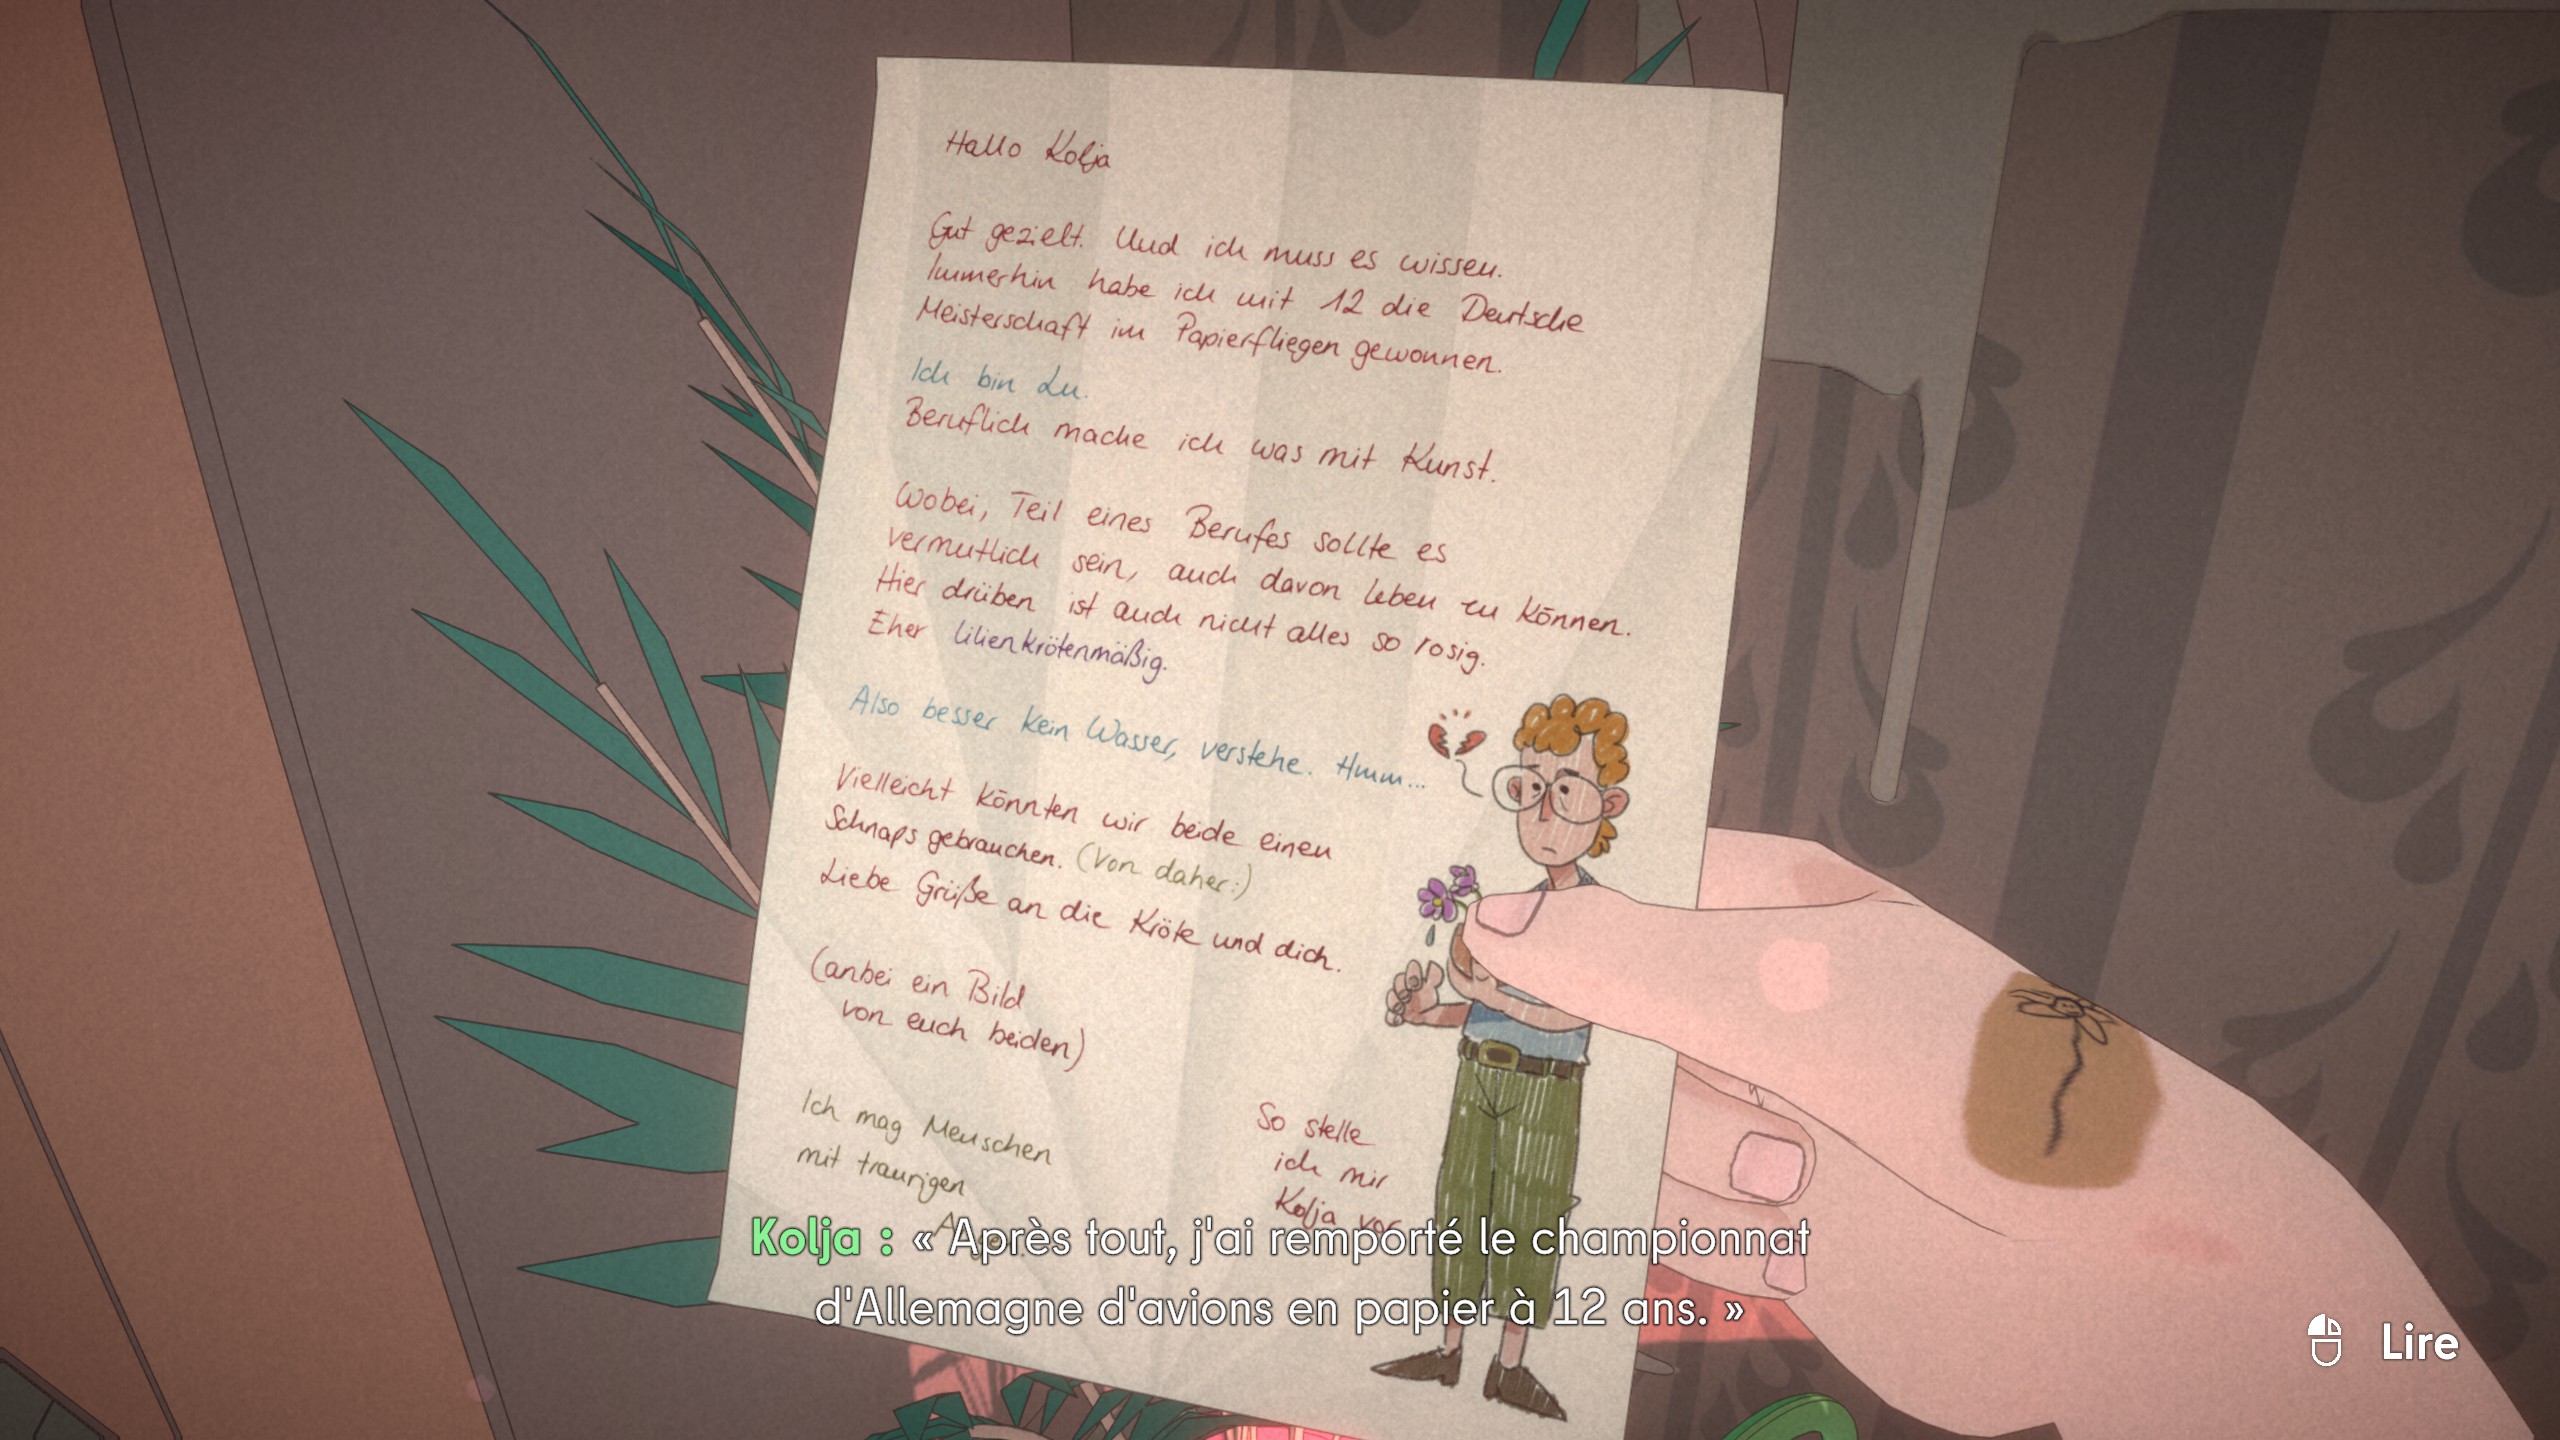 Hallo Kolja
Gut gezielt. Und ich muss es wissen.
Immerhin habe ich mit 12 die Deutsche
Meisterschaft im Papierfliegen gewonnen.
Ich bin Lu.
Beruflich mache ich was mit Kunst.
Wobei, Teil eines Berufes sollte es
vermutlich sein, auch davon leben zu können.
Hier drüben ist auch nicht alles so rosig.
Eher lilienkrötenmäßig.
Also besser kein Wasser, verstehe. Hmm...
Vielleicht könnten wir beide einen
Schnaps gebrauchen. (Von daher:)
Liebe Grüße an die Kröte und dich.
(anbei ein Bild
von euch beiden)
Ich mag Menschen
mit traurigen
So stelle
ich mir
Kolja vor
Kolja : « Après tout, j'ai remporté le championnat
d'Allemagne d'avions en papier à 12 ans. »
Lire